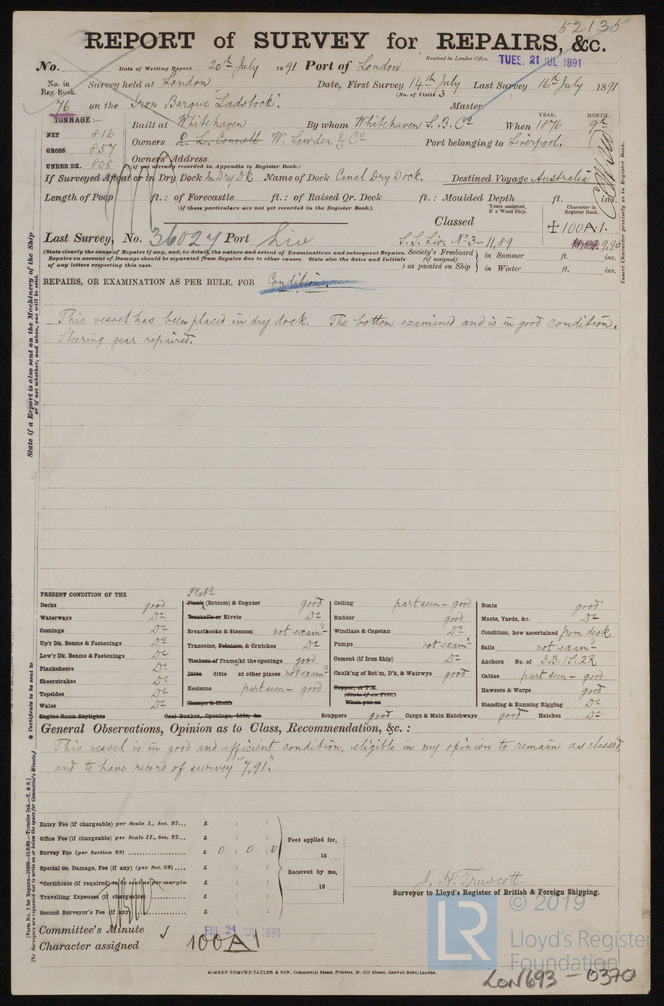 52135
REPORT of SURVEY for REPAIRS, &c.
No. Date of Writing Report 20th July 1891 Port of London Received in London Office. TUES. 21 JUL 1891
No. in Reg. Book. Survey held at London Date, First Survey 14th July Last Survey 16th July 1891
(No. of Visits 3)
76 on the Iron Barque "Ladstock". Master
TONNAGE:— YEAR. MONTH.
NET 816 Built at Whitehaven By whom Whitehaven S. B. Co When 1876 9th
GROSS 857 Owners R. L. Connell W. Lowden & Co Port belonging to Liverpool.
UNDER DK. 808 Owners' Address
(if not already recorded in Appendix to Register Book.)
If Surveyed Afloat or in Dry Dock In Dry Dk Name of Dock Canal Dry Dock. Destined Voyage Australia
Length of Poop ft.: of Forecastle ft.: of Raised Qr. Deck ft.: Moulded Depth ft. ins.
(if these particulars are not yet recorded in the Register Book.)
Years assigned, if a Wood Ship. Character in Register Book.
Classed ✠100A1.
Last Survey, No. 36024 Port Liv S.S. Liv. No 3 - 11,89 9,90
(State clearly the cause of Repairs if any, and, in detail, the nature and extent of Examinations and subsequent Repairs. Society's Freeboard in Summer ft. ins.
Repairs on account of Damage should be separated from Repairs due to other causes. State also the dates and Initials (if assigned)
of any letters respecting this case. as painted on Ship in Winter ft. ins.
REPAIRS, OR EXAMINATION AS PER RULE, FOR Condition
This vessel has been placed in dry dock. The bottom examined and is in good condition.
Steering gear repaired.
State if a Report is also sent on the Machinery of the Ship
Insert Character precisely as in Register Book.
PRESENT CONDITION OF THE
Decks good
Waterways Do
Comings Do
Up'r Dk. Beams & Fastenings Do
Low'r Dk. Beams & Fastenings Do
Planksheers Do
Sheerstrakes Do
Topsides Do
Wales Do
Engine Room Skylights
Plate
Plank (Bottom) & Counter good
Treenails or Rivets Do
Breasthooks & Stemson not exam
Transoms, Pointers, & Crutches Do
Timbers of Frame at the openings good
Ditto ditto at other places not exam
Keelsons part seen - good
Clamps & Shelfs
Coal Bunker, Openings, Lids, &c.
Ceiling part seen - good
Rudder good
Windlass & Capstan Do
Pumps not exam
Cement (if Iron Ship) Do
Caulk'ng of Bot'm, D'k, & Watrwys good
Copper, or Y.M.
(State if on Felt.)
When put on
Scuppers good Cargo & Main Hatchways good Hatches Do
Boats good
Masts, Yards, &c. Do
Condition, how ascertained from deck
Sails not exam
Anchors No. of 3B. 1S. 2K
Cables part seen - good
Hawsers & Warps good
Standing & Running Rigging Do
General Observations, Opinion as to Class, Recommendation, &c.:
This vessel is in good and efficient condition, eligible in my opinion to remain as classed
and to have record of survey "7,91."
* Certificate to be sent to
Entry Fee (if chargeable) per Scale I., Sec. 27... £ : :
Office Fee (if chargeable) per Scale II., Sec. 27... £ : :
Survey Fee (per Section 28) £ 0 : 0 : 0
Special on Damage, Fee (if any) (per Sec. 28).... £ : :
*Certificate (if required) to be sent as per margin
Travelling Expenses (if chargeable) £ : :
Second Surveyor's Fee (if any) £ : :
Fees applied for,
18
Received by me,
18
J. H. Truscott
Surveyor to Lloyd's Register of British & Foreign Shipping.
Committee's Minute FRI. 24 JUL 1891
Character assigned 100A1
© 2019
LR
Lloyd's Register
Foundation
ROBERT EDMUND TAYLOR & SON, Commercial Steam Printers, 19, Old Street, Goswell Road, London.
LON693-0370